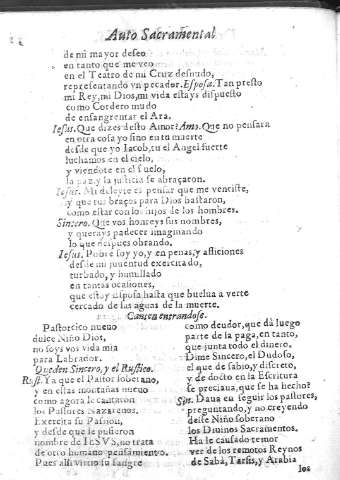 Auto Sacramental
de mi mayor deseo
en tanto que me veo
en el Teatro de mi Cruz desnudo,
representando vn pecador. Esposa. Tan presto
mi Rey, mi Dios, mi vida estays dispuesto
como Cordero mudo
de ensangrentar el Ara.
Iesus. Que dizes desto Amor? Amo. Que no pensara
en otra cosa yo sino en tu muerte
desde que yo Iacob, tu el Angel fuerte
luchamos en el cielo,
y viendote en el suelo,
la paz, y la justicia se abraçaron.
Iesus. Mi deleyte es pensar que me venciste,
y que tus braços para Dios bastaron,
como estar con los hijos de los hombres.
Sincero. Que vos honreys sus nombres,
y querays padecer imaginando
lo que despues obrando.
Iesus. Pobre soy yo, y en penas, y afliciones
desde mi juventud exercitado,
turbado, y humillado
en tantas ocasiones,
que estoy Esposa hasta que buelua a verte
cercado de las aguas de la muerte.
Canten entrandose.
Pastorcico nueuo
dulce Niño Dios,
no soys vos vida mia
para Labrador.
Queden Sincero, y el Rustico.
Rust. Ya que el Pastor soberano,
y en estas montañas nueuo
como agora le cantaron
los Pastores Nazarenos.
Exercita su Passion,
y desde que le pusieron
nombre de IESVS, no trata
de otro humano pensamiento.
Pues alli vertio su sangre
como deudor, que dà luego
parte de la paga, en tanto,
que junta todo el dinero.
Dime Sincero, el Dudoso,
el que de sabio, y discreto,
y de docto en la Escritura
se preciaua, que se ha hecho?
Sin. Daua en seguir los pastores,
preguntando, y no creyendo
deste Niño soberano
los Diuinos Sacramentos.
Ha le causado temor
ver de los remotos Reynos
de Sabà, Tarsis, y Arabia
los